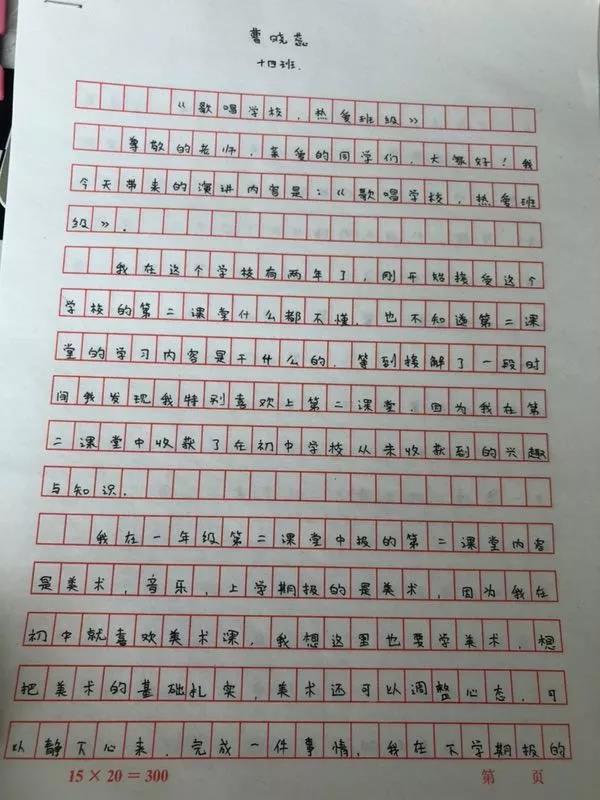 曹晓蕊
十四班.
《歌唱学校,热爱班级》
尊敬的老师,亲爱的同学们,大家好!我
今天带来的演讲内容是:《歌唱学校,热爱班
级》.
我在这个学校有两年了,刚开始接受这个
学校的第二课堂什么都不懂.也不知道第二课
堂的学习内容是干什么的.等到接解了一段时
间我发现我特别喜欢上第二课堂.因为我在第
二课堂中收获了在初中学校从未收获到的兴趣
与知识.
我在一年级第二课堂中报的第二课堂内容
是美术,音乐,上学期报的是美术,因为我在
初中就喜欢美术课,我想这里也要学美术,想
把美术的基础扎实,美术还可以调整心态,可
以静下心来.完成一件事情,我在下学期报的
15×20=300
第 页